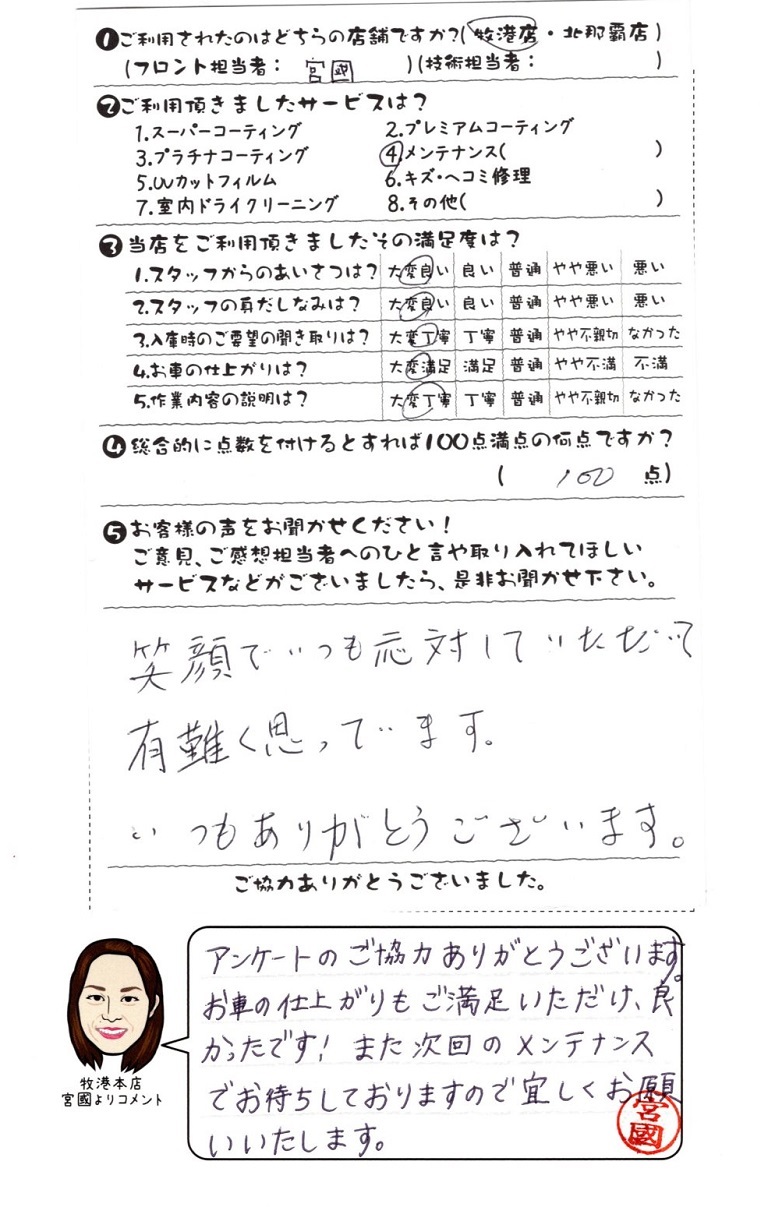 ❶ご利用されたのはどちらの店舗ですか?(牧港店・北那覇店)
(フロント担当者: 宮國 )(技術担当者: )
❷ご利用頂きましたサービスは?
1.スーパーコーティング 2.プレミアムコーティング
3.プラチナコーティング 4.メンテナンス( )
5.UVカットフィルム 6.キズ・ヘコミ修理
7.室内ドライクリーニング 8.その他( )
❸当店をご利用頂きましたその満足度は?
1.スタッフからのあいさつは? 大変良い 良い 普通 やや悪い 悪い
2.スタッフの身だしなみは? 大変良い 良い 普通 やや悪い 悪い
3.入庫時のご要望の聞き取りは? 大変丁寧 丁寧 普通 やや不親切 なかった
4.お車の仕上がりは? 大変満足 満足 普通 やや不満 不満
5.作業内容の説明は? 大変丁寧 丁寧 普通 やや不親切 なかった
❹総合的に点数を付けるとすれば100点満点の何点ですか?
( 100 点)
❺お客様の声をお聞かせください!
ご意見、ご感想担当者へのひと言や取り入れてほしい
サービスなどがございましたら、是非お聞かせ下さい。
笑顔でいつも応対していただいて
有難く思っています。
いつもありがとうございます。
ご協力ありがとうございました。
アンケートのご協力ありがとうございます。
お車の仕上がりもご満足いただけ、良
かったです!また次回のメンテナンス
でお待ちしておりますので宜しくお願
いいたします。
宮國
牧港本店
宮國よりコメント